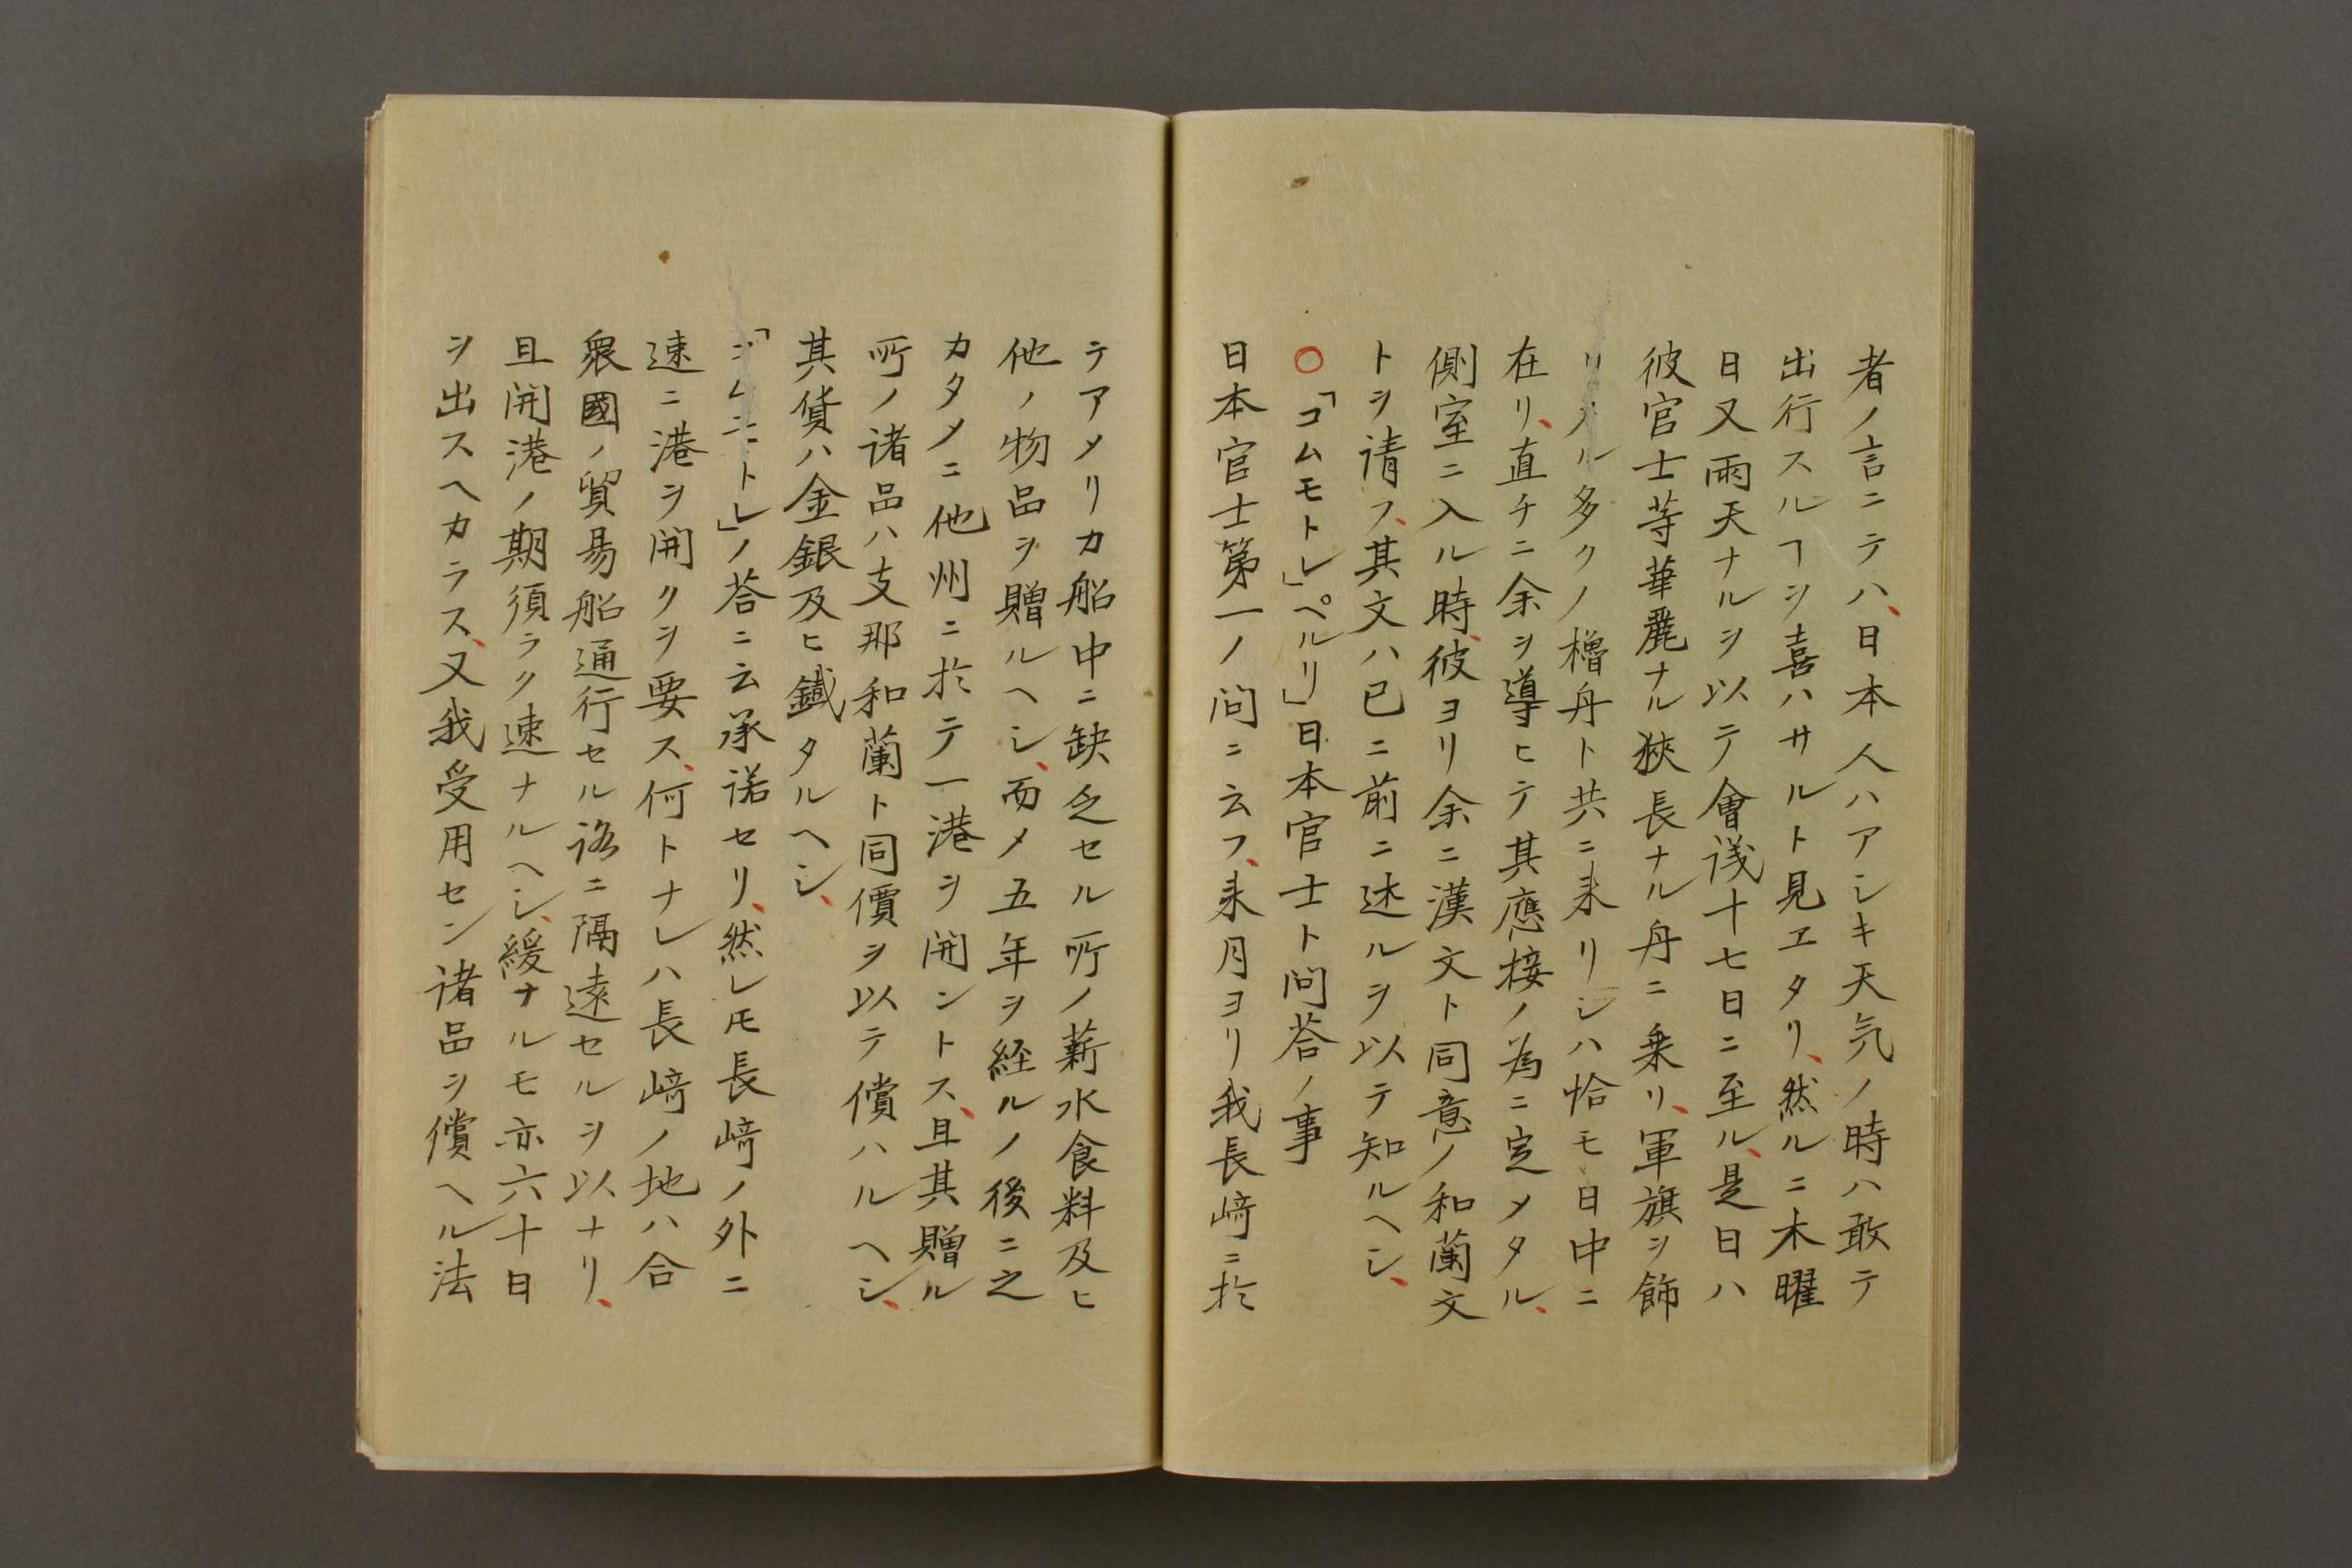 者ノ言ニテハ、日本人ハアシキ天気ノ時ハ敢テ
出行スルヿヲ喜ハサルト見ヱタリ、然ルニ木曜
日又雨天ナルヲ以テ會議十七日ニ至ル、是日ハ
彼官士等華麗ナル狹長ナル舟ニ乗リ、軍旗ヲ飾
リタル多クノ櫓舟ト共ニ来リシハ恰モ日中ニ
在リ、直チニ余ヲ導ヒテ其應接ノ為ニ定メタル、
側室ニ入ル時、彼ヨリ余ニ漢文ト同意ノ和蘭文
トヲ請フ、其文ハ已ニ前ニ述ルヲ以テ知ルヘシ、
○「コムモトレ」ペルリ」日本官士ト問荅ノ事
日本官士第一ノ問ニ云フ、来月ヨリ我長﨑ニ於
テアメリカ船中ニ缺乏セル所ノ薪水食料及ヒ
他ノ物品ヲ贈ルヘシ、而メ五年ヲ経ルノ後ニ之
カタメニ他州ニ於テ一港ヲ開ントス、且其贈ル
所ノ諸品ハ支那和蘭ト同價ヲ以テ償ハルヘシ、
其貨ハ金銀及ヒ鐵タルヘシ、
トレ」ノ荅ニ云承諾セリ、然レ𪜈長﨑ノ外ニ
速ニ港ヲ開クヲ要ス、何トナレハ長﨑ノ地ハ合
衆國ノ貿易船通行セル路ニ隔遠セルヲ以ナリ、
且開港ノ期須ラク速ナルヘシ、緩ナルモ亦六十日
ヲ出スヘカラス、又我受用セン諸品ヲ償ヘル法